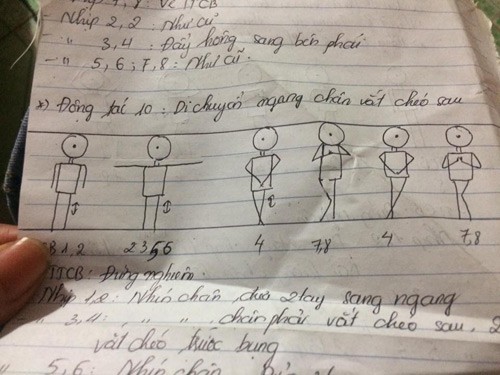 Nhịp 1, 8: Về TTCB
- Nhịp 2, 2: Như cũ
- " 3, 4: Đẩy hông sang bên phải
- " 5, 6; 7, 8: Như cũ.
*) Động tác 10: Di chuyển ngang chân vắt chéo sau
1, 2 2 3, 5, 6 4 7,8 4 7,8
TTCB: Đứng nghiêm.
- Nhịp 1, 2: Nhún chân, đưa 2 tay sang ngang
- " 3, 4: " " , chân phải vắt chéo sau, 2
vắt chéo trước bụng
" 5, 6: Nhún chân